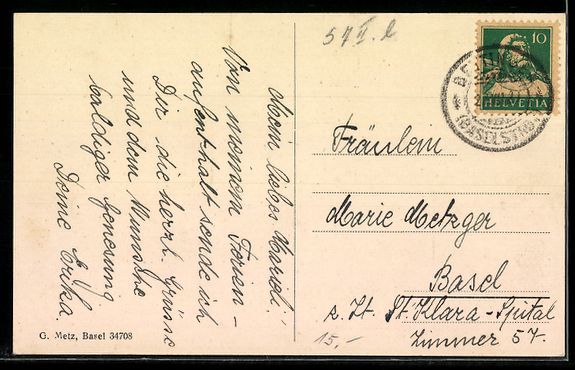 57 II. b
10
HELVETIA
(BASEL-STADT)
Mein liebes Marieli!
Von meinem Ferien-
aufenthalt sende ich
Dir die herzl. Grüsse
und den Wunsche
baldiger Genesung
Deine Erika.
Fräulein
Marie Metzger
Basel
z. Zt. St. Klara-Spital
Zimmer 57.
15.-
G. Metz, Basel 34708